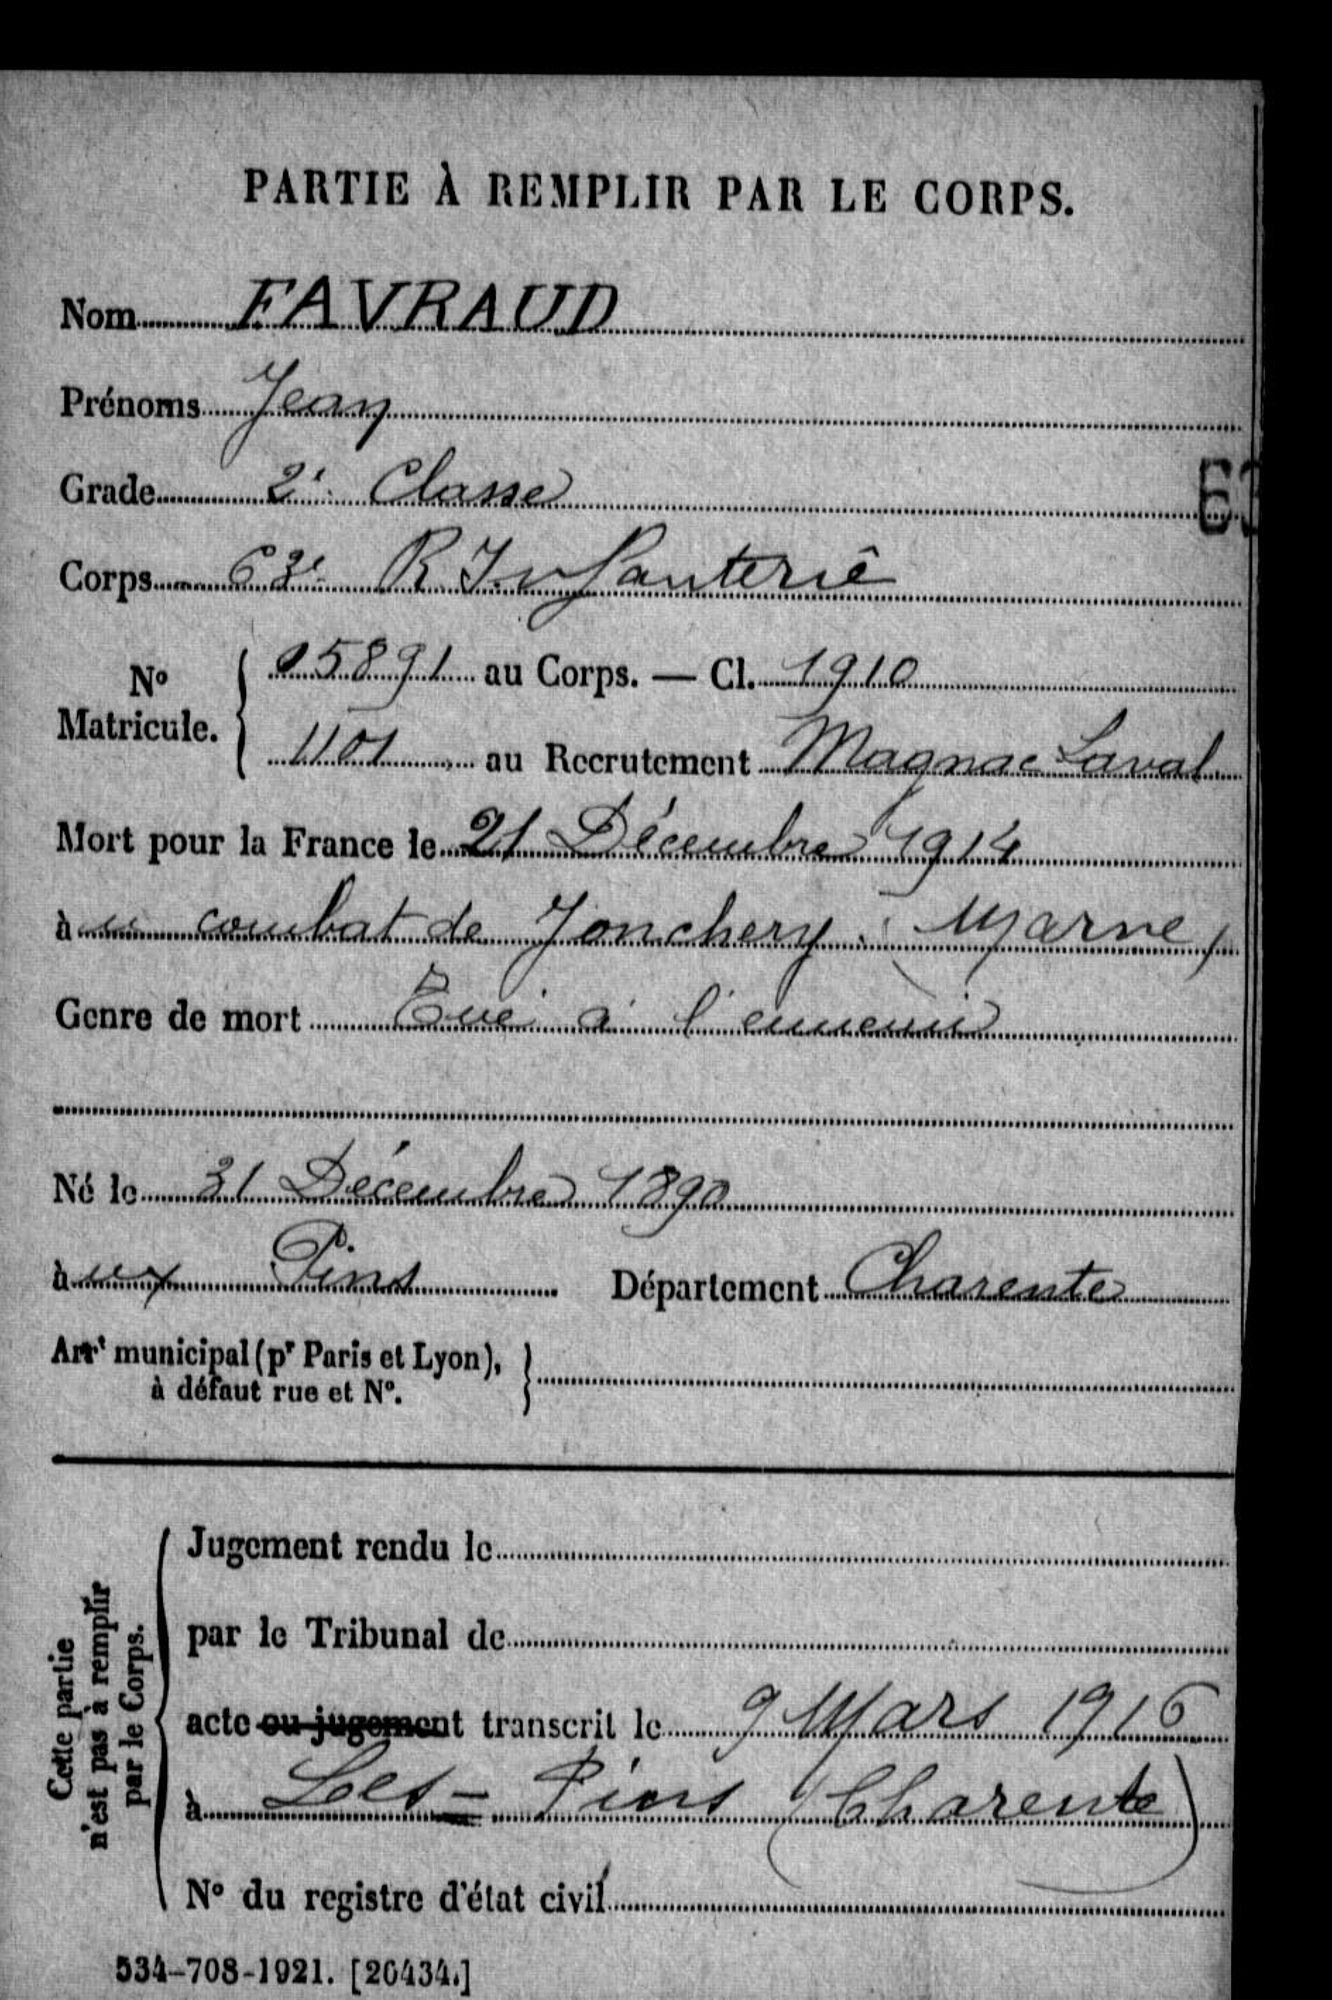 PARTIE À REMPLIR PAR LE CORPS.
Nom FAVRAUD
Prénoms Jean
Grade 2e Classe
63
Corps 63e R Infanterie
No Matricule. { 05891 au Corps. — Cl. 1910
1101 au Recrutement Magnac Laval
Mort pour la France le 21 Décembre 1914
à u combat de Jonchery (Marne)
Genre de mort Tué à l'ennemi
Né le 31 Décembre 1890
à ux Pins Département Charente
Arrt municipal (pr Paris et Lyon), }
à défaut rue et No.
Cette partie
n'est pas à remplir
par le Corps.
Jugement rendu le
par le Tribunal de
acte ou jugement transcrit le 9 Mars 1916
à Les-Pins (Charente)
No du registre d'état civil
534-708-1921. [20434.]